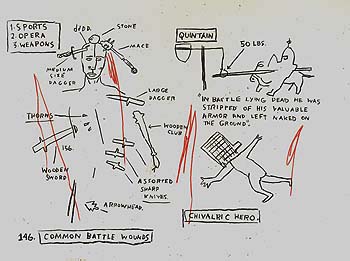 1. SPORTS
2. OPERA
3. WEAPONS
STONE
MACE
MEDIUM
SIZE
DAGGER
LARGE
DAGGER
THORNS
WOODEN
CLUB
156.
WOODEN
SWORD
ASSORTED
SHARP
KNIVES.
ARROWHEAD.
146. COMMON BATTLE WOUNDS
QUINTAIN
50 LBS.
"IN BATTLE LYING DEAD HE WAS
STRIPPED OF HIS VALUABLE
ARMOR AND LEFT NAKED ON
THE GROUND".
CHIVALRIC HERO.